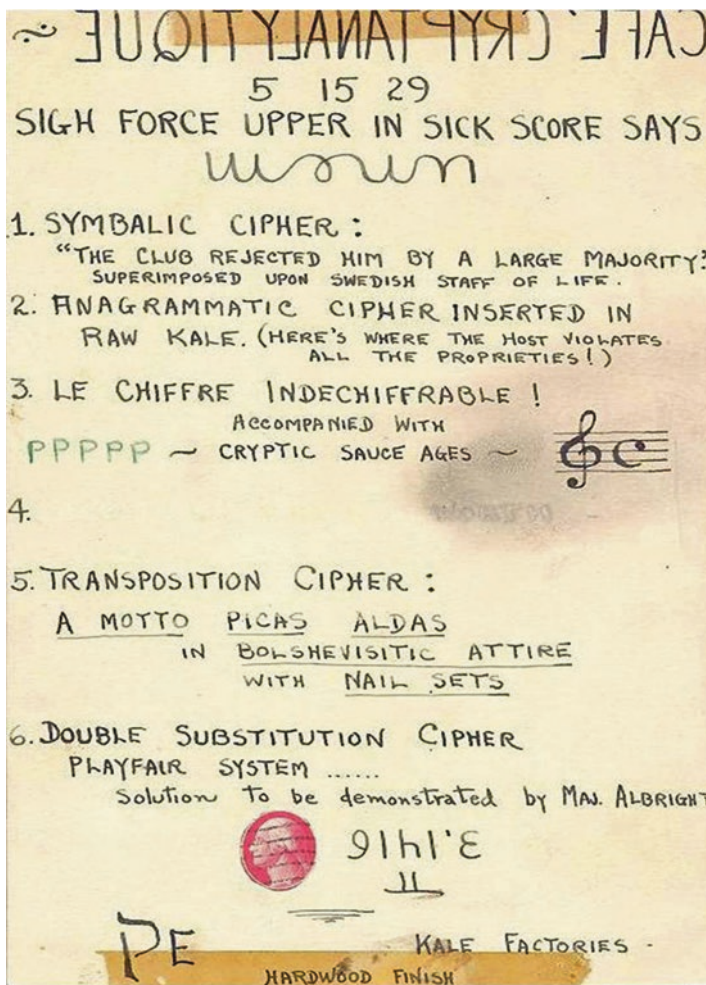 CAFE' CRYPTANALYTIQUE ~
5 15 29
SIGH FORCE UPPER IN SICK SCORE SAYS
1. SYMBALIC CIPHER :
"THE CLUB REJECTED HIM BY A LARGE MAJORITY"
SUPERIMPOSED UPON SWEDISH STAFF OF LIFE.
2. ANAGRAMMATIC CIPHER INSERTED IN
RAW KALE. (HERE'S WHERE THE HOST VIOLATES
ALL THE PROPRIETIES!)
3. LE CHIFFRE INDECHIFFRABLE !
ACCOMPANIED WITH
PPPPP ~ CRYPTIC SAUCE AGES ~
4.
5. TRANSPOSITION CIPHER :
A MOTTO PICAS ALDAS
IN BOLSHEVISITIC ATTIRE
WITH NAIL SETS
6. DOUBLE SUBSTITUTION CIPHER
PLAYFAIR SYSTEM ......
Solution to be demonstrated by MAJ. ALBRIGHT
3.1416
PE KALE FACTORIES -
HARDWOOD FINISH